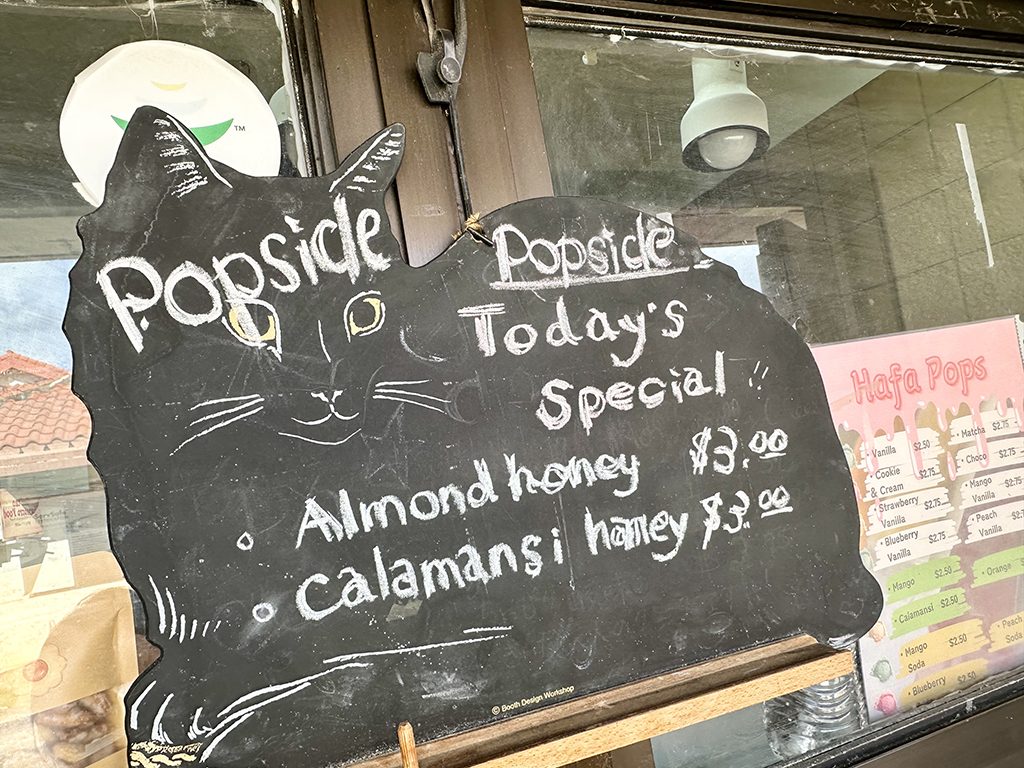 TM
Popside
Popside
Today's
Special !!
Almond honey $3.00
Calamansi honey $3.00
© Booth Design Workshop
Hafa Pops
• Vanilla $2.50
• Cookie
& Cream $2.75
• Strawberry
Vanilla $2.75
• Blueberry
Vanilla $2.75
• Mango $2.50
• Calamansi $2.50
• Mango
Soda $2.50
• Blueberry $2.50
• Matcha $2.75
• Choco $2.75
• Mango
Vanilla $2.75
• Peach
Vanilla $2.75
• Orange
• Peach
Soda